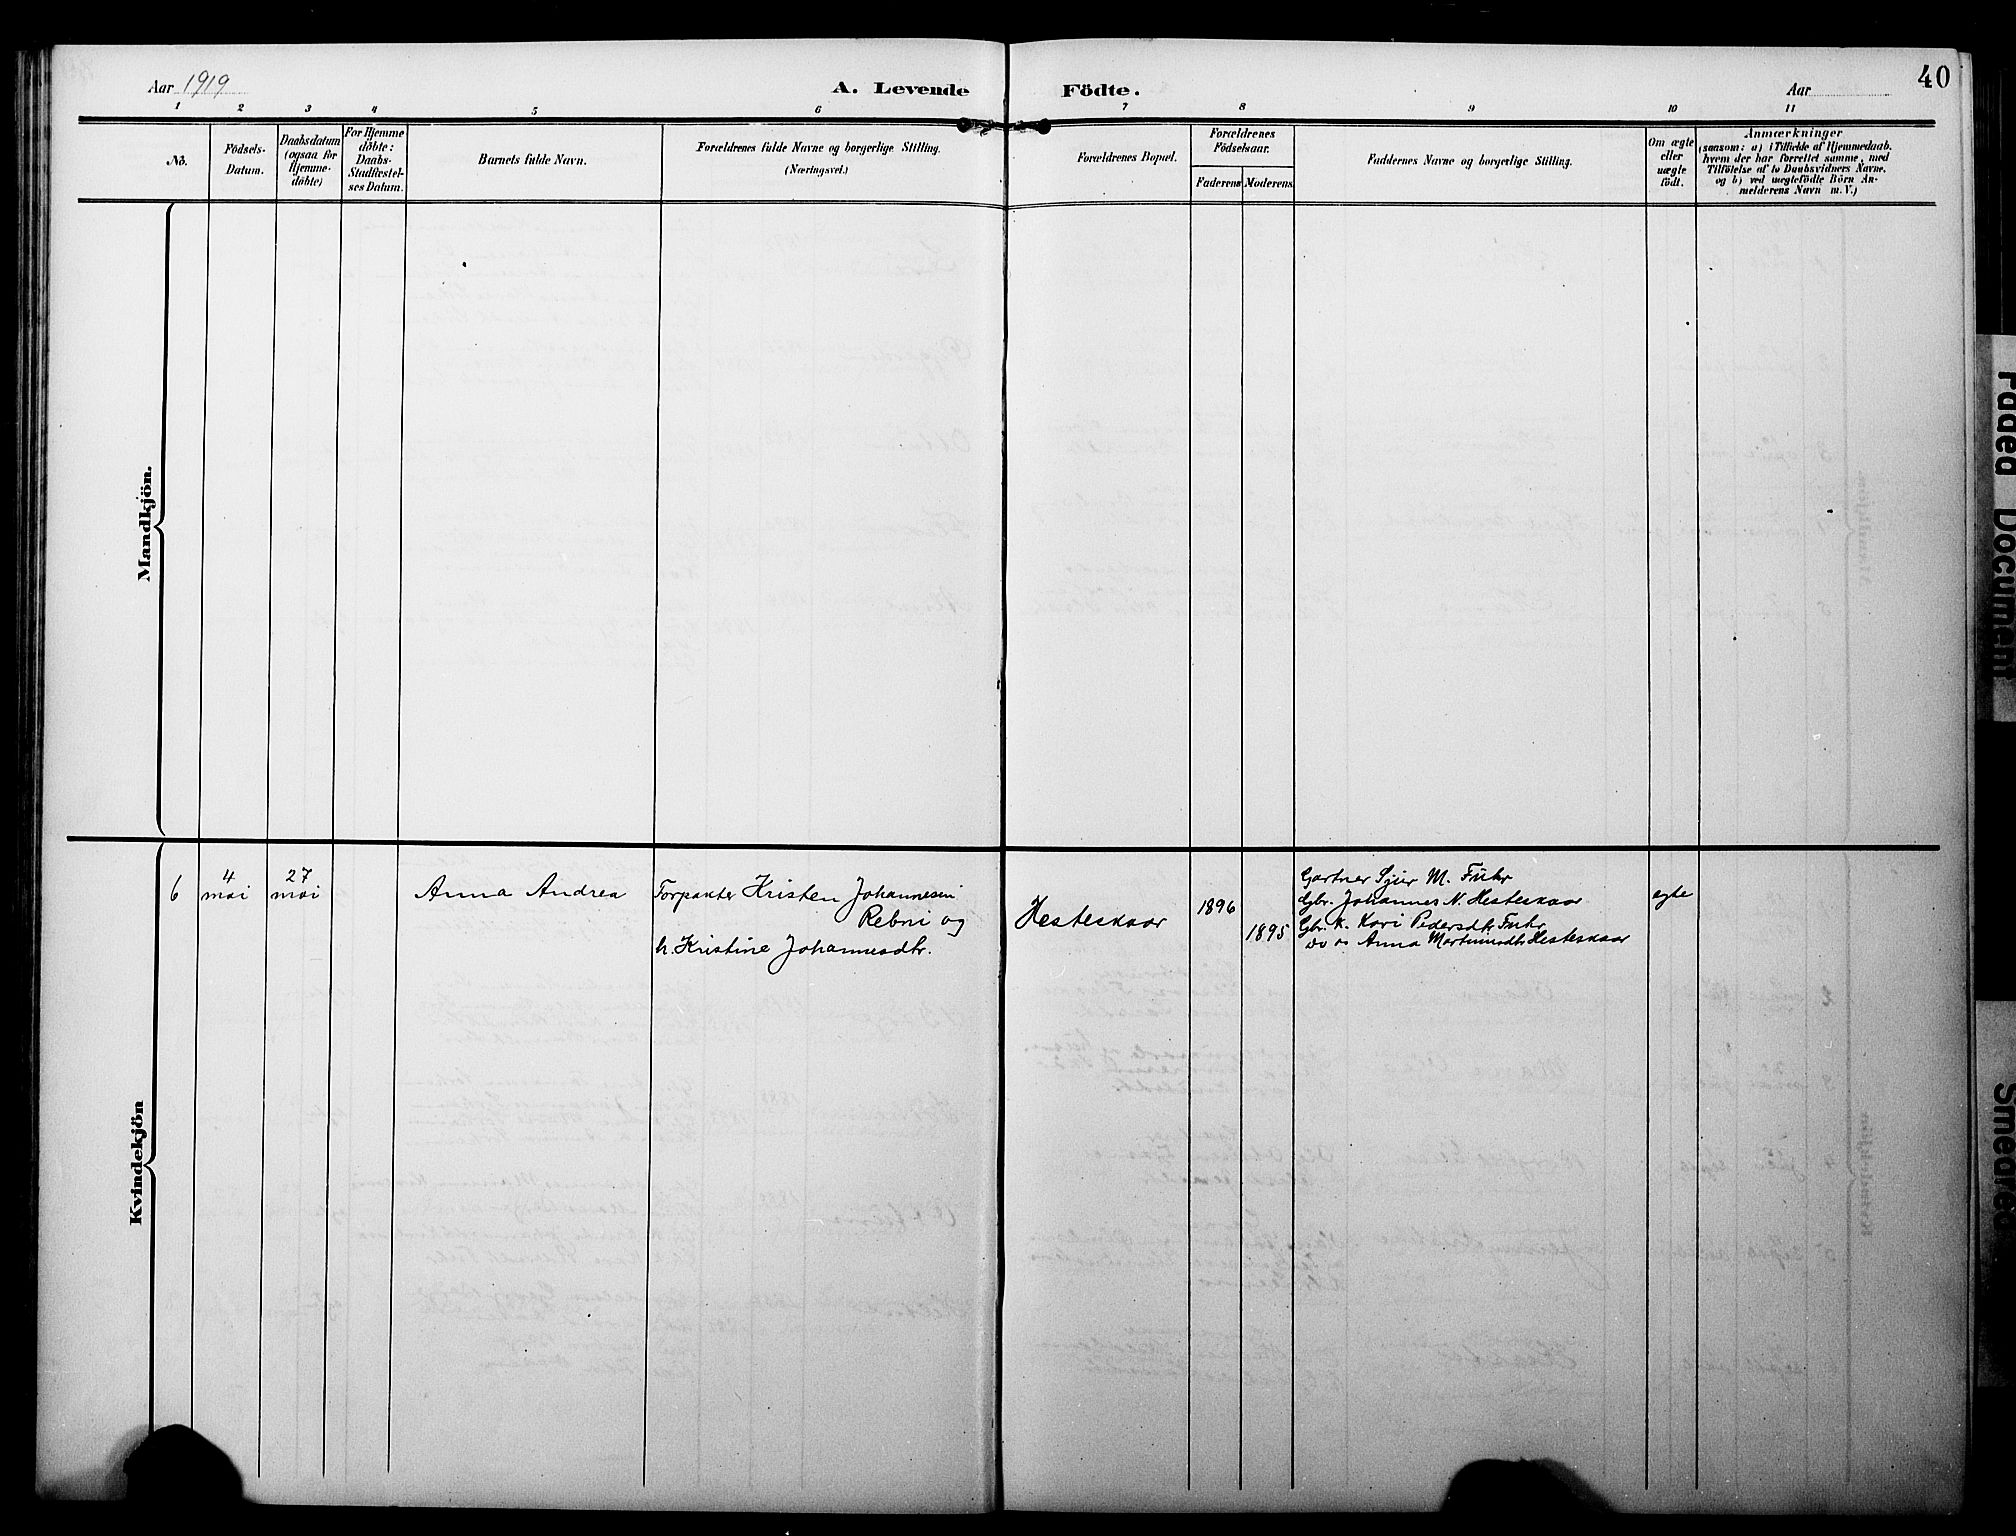 Aar 1919
A. Levende Födte.
Aar
40
1 2 3 4 5 6 7 8 9 10 11
No.
Födsels-
Datum.
Daabsdatum
(ogsaa for
Hjemme-
döbte)
For Hjemme
döbte:
Daabs-
Stadfæstel-
ses Datum.
Barnets fulde Navn.
Forældrenes fulde Navne og borgerlige Stilling.
(Næringsvei.)
Forældrenes Bopæl.
Forældrenes
Födselsaar.
Faderens
Moderens
Faddernes Navne og borgerlige Stilling.
Om ægte
eller
uægte
födt.
Anmærkninger
(saasom: a) i Tilfælde af Hjemmedaab.
hvem der har forrettet samme, med
Tilföielse af to Daabsvidners Navne.
og b) ved uægtefödte Börn An-
melderens Navn m. V.)
Mandkjön.
Kvindekjön
6
4
mai
27
mai
Anna Andrea
Forpakter Kristen Johannesen
Rebni og
h. Kristine Johannesdtr.
Hesteskaar
1896
1895
Gartner Sjur M. Fuhr
Gbr. Johannes N. Hesteskaar
Gbr. K. Kari Pedersdtr Fuhr
Anna Martinusdtr Hesteskaar
egte
Faded Document
Smeared